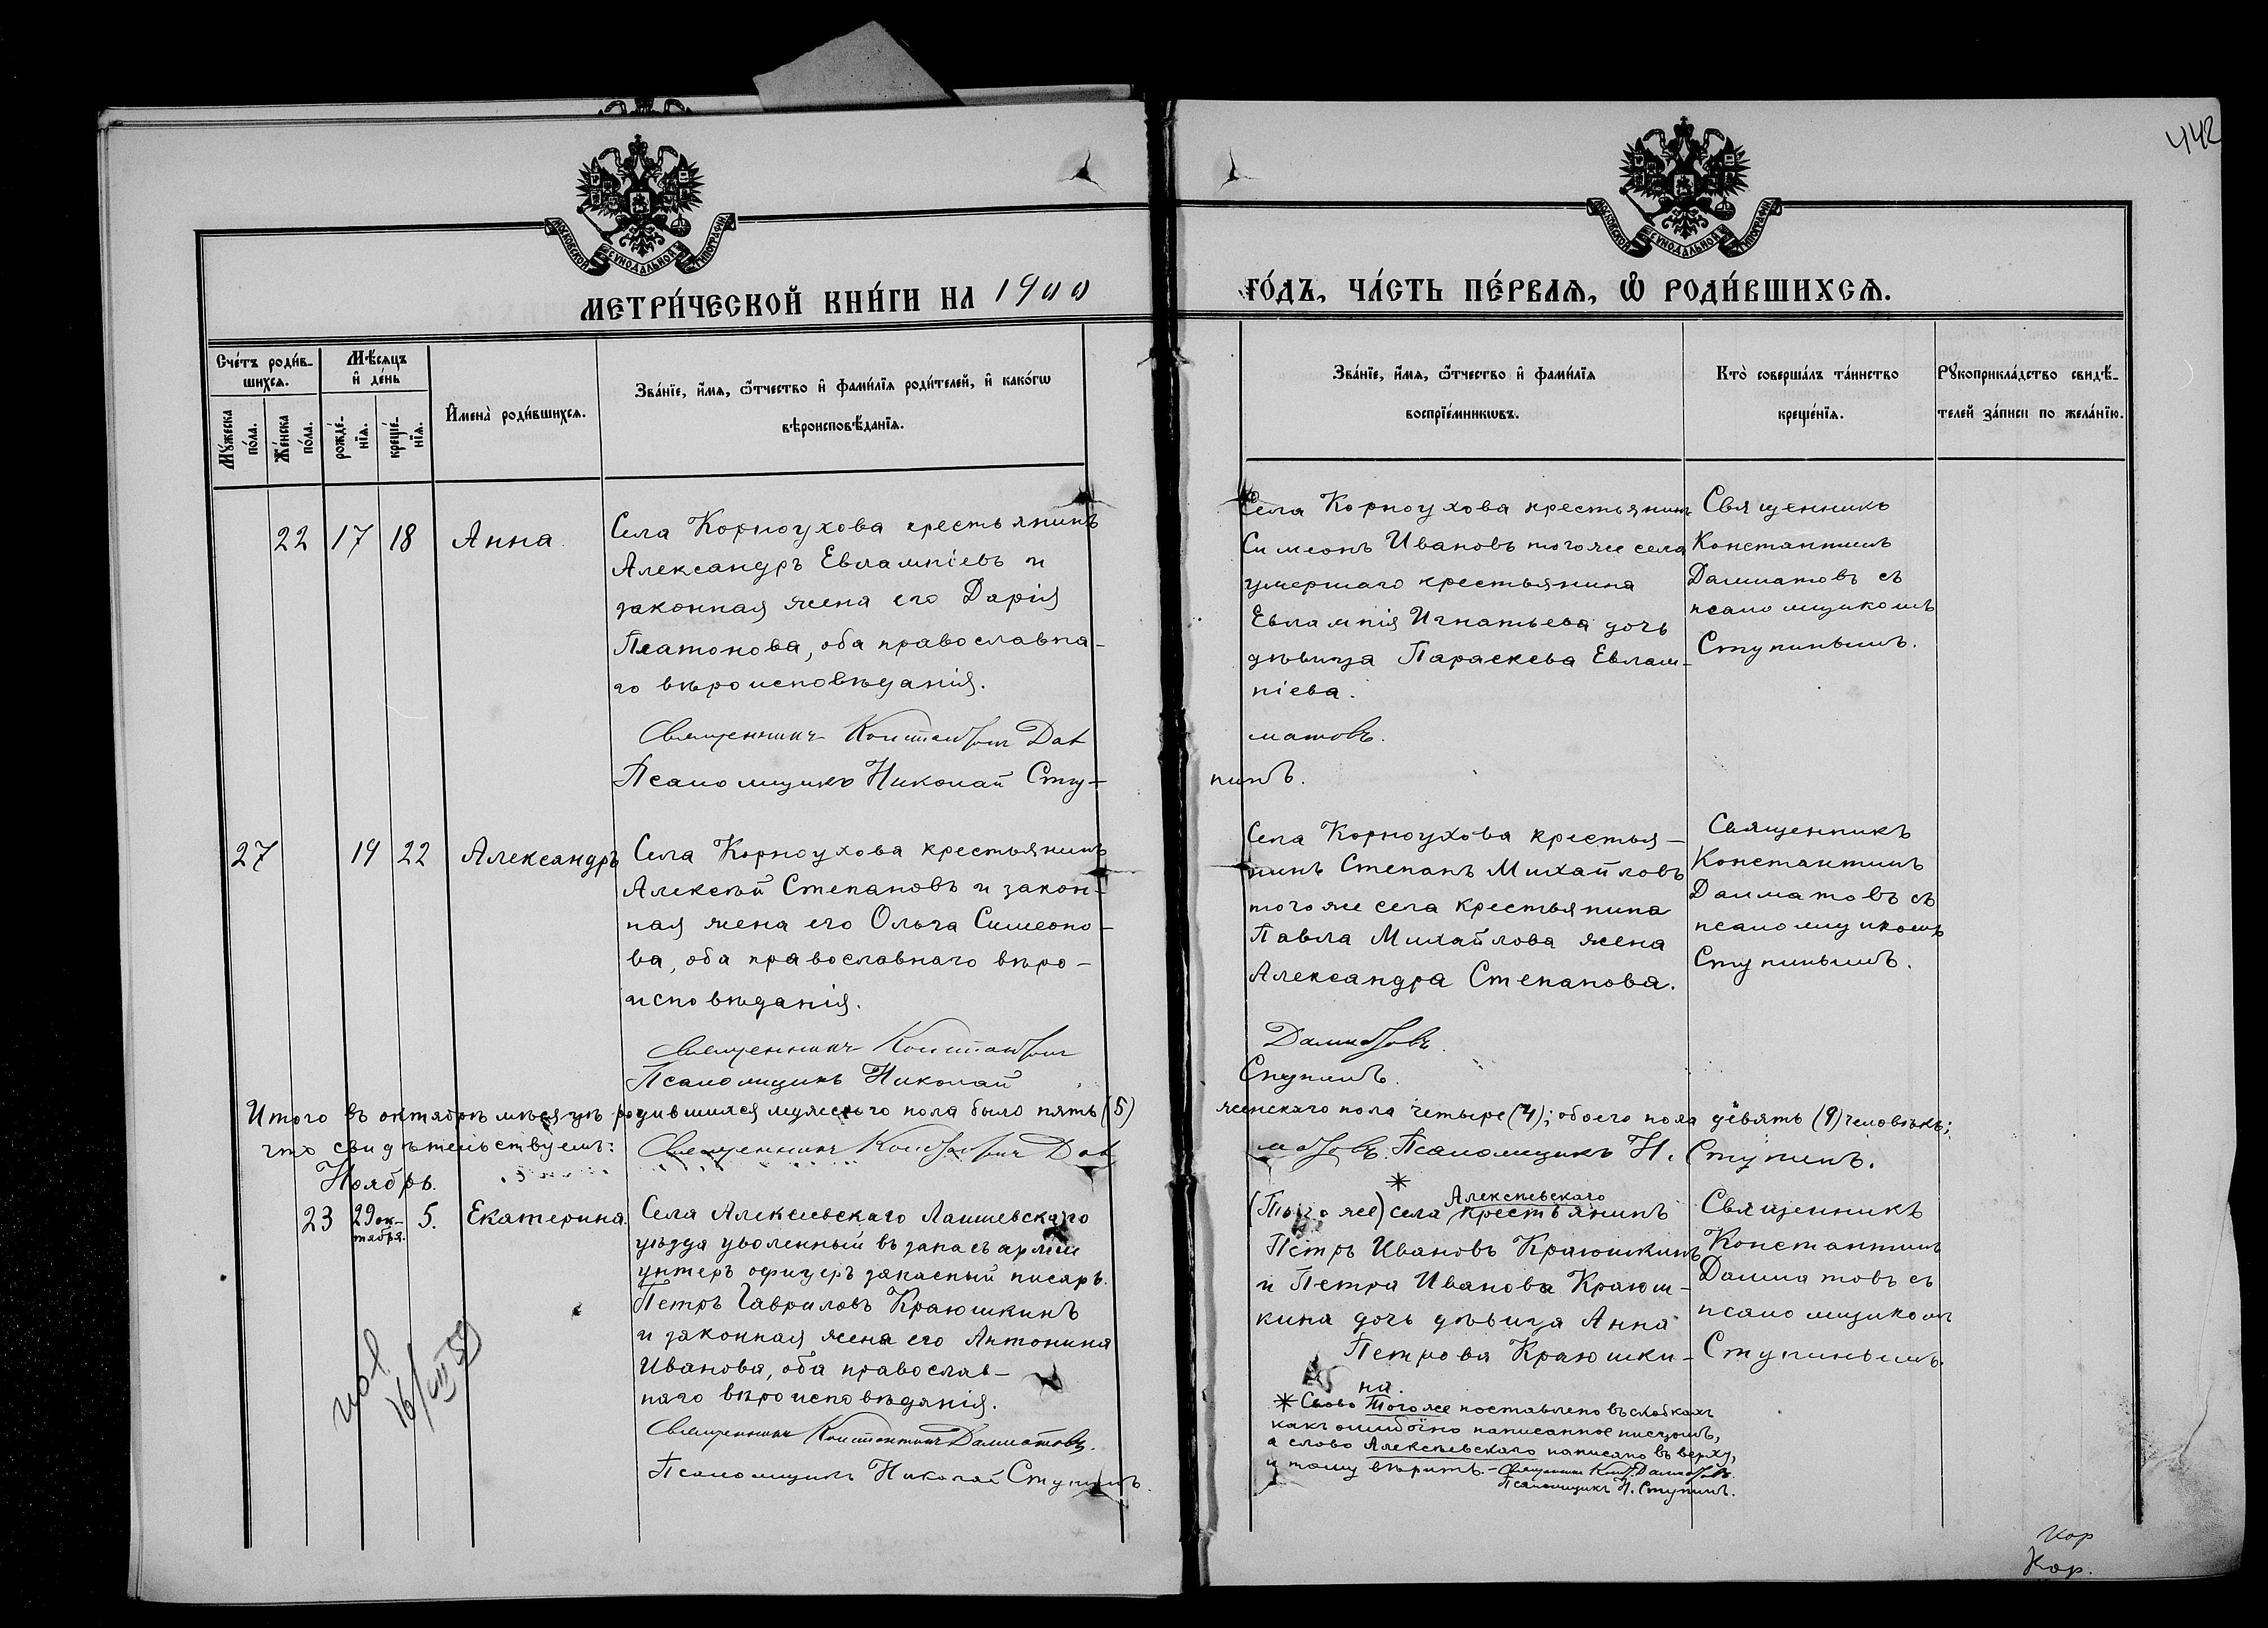 442
МОСКОВСКОЙ СѴНОДАЛЬНОЙ ТИПОГРАФІИ
МОСКОВСКОЙ СѴНОДАЛЬНОЙ ТИПОГРАФІИ
МЕТРИ́ЧЕСКОЙ КНИ́ГИ НА 1900
ГО́ДЪ, ЧА́СТЬ ПЕ́РВАѦ, Ѡ РОДИ́ВШИХСѦ.
Сче́тъ роди́в-
шихсѧ.
Мꙋ́жеска
по́ла.
Же́нска
по́ла.
Мѣ́сѧцъ
и҆ де́нь
рожде́-
нїѧ.
креще́-
нїѧ.
И҆мена̀ роди́вшихсѧ.
Зва́нїе, и҆́мѧ, ѻ҆́тчество и҆ фами́лїѧ роди́телей, и҆ како́гѡ
вѣроисповѣ́данїѧ.
Зва́нїе, и҆́мѧ, ѻ҆́тчество и҆ фами́лїѧ
воспрїе́мникѡвъ.
Кто̀ соверша́лъ та́инство
креще́нїѧ.
Рꙋкоприкла́дство свидѣ́-
телей за́писи по жела́нїю.
22 17 18 Анна
Села Корноухова крестьянинъ
Александръ Евлампіевъ и
законная жена его Дарія
Платонова, оба православна-
го вѣроисповѣданія.
Священникъ Константинъ Дал
Псаломщикъ Николай Сту-
Села Корноухова крестьянинъ
Симеонъ Ивановъ того же села
умершаго крестьянина
Евлампія Игнатьева дочь
дѣвица Параскева Евлам-
піева.
матовъ.
пинъ.
Священникъ
Константинъ
Далматовъ съ
псаломщикомъ
Ступинымъ.
27 19 22 Александръ
Села Корноухова крестьянинъ
Алексѣй Степановъ и закон-
ная жена его Ольга Симеоно-
ва, оба православнаго вѣро-
исповѣданія.
Священникъ Константинъ
Псаломщикъ Николай
Села Корноухова крестья-
нинъ Степанъ Михайловъ
того же села крестьянина
Павла Михайлова жена
Александра Степанова.
Далматовъ.
Ступинъ.
Священникъ
Константинъ
Далматовъ съ
псаломщикомъ
Ступинымъ.
Итого въ октябрѣ мѣсяцѣ родившихся мужескаго пола было пять (5)
женскаго пола четыре (4); обоего пола девять (9) человѣкъ;
что свидѣтельствуемъ: Священникъ Константинъ Дал
матовъ. Псаломщикъ Н. Ступинъ.
Ноябрь.
23 29 ок-
тября. 5. Екатерина.
Села Алексеевскаго Лаишевскаго
уѣзда уволенный въ запасъ арміи
унтеръ офицеръ запасный писарь
Петръ Гавриловъ Краюшкинъ
и законная жена его Антонина
Иванова, оба православ-
наго вѣроисповѣданія.
Священникъ Константинъ Далматовъ.
Псаломщикъ Николай Ступинъ.
✳ Алексѣевскаго
(Того же) села крестьянинъ
Петръ Ивановъ Краюшкинъ
и Петра Иванова Краюш-
кина дочь дѣвица Анна
Петрова Краюшки-
на.
✳ Слово Того же поставлено въ скобкахъ
какъ ошибочно написанное писцомъ,
а слово Алексѣевскаго написано въ верху,
и тому вѣрить. - Священникъ Конст. Далматовъ.
Псаломщикъ Н. Ступинъ.
Священникъ
Константинъ
Далматовъ съ
псаломщикомъ
Ступинымъ.
Кор
Кор.